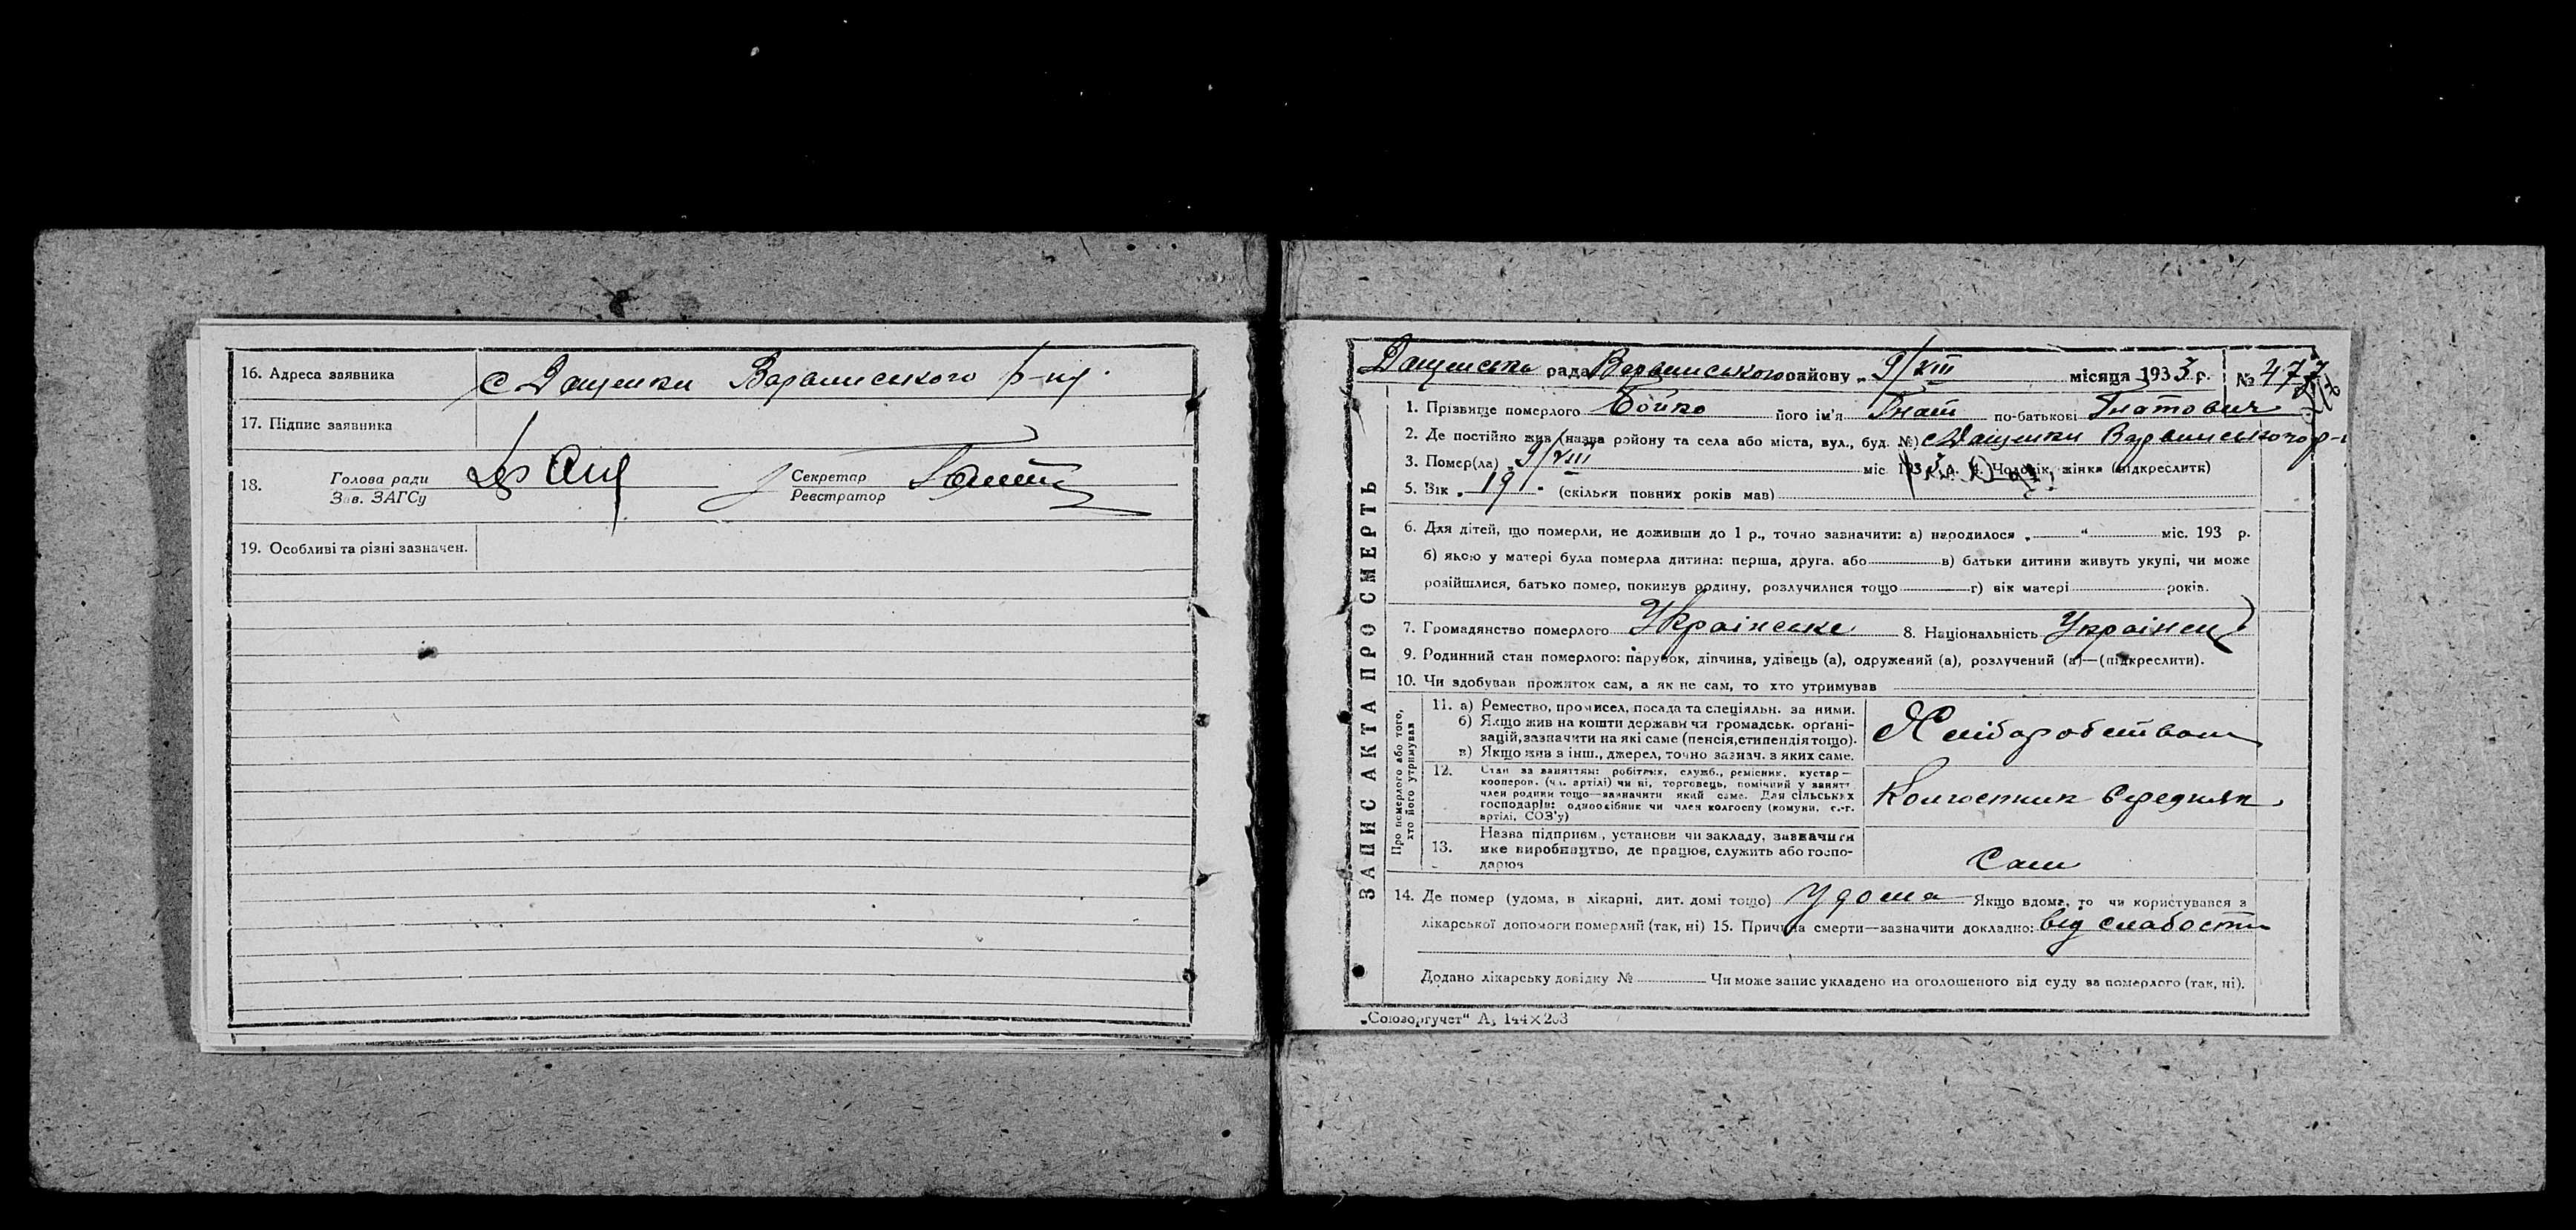 16. Адреса заявника с Дащенки Варвинського р-ну.
17. Підпис заявника
18. Голова ради Секретар
Зав. ЗАГСу Реєстратор
19. Особливі та різні зазначен.
ЗАПИС АКТА ПРО СМЕРТЬ
Дащенська рада Варвинського району „ 9/VIII місяця 1933 р. № 477
1. Прізвище померлого Бойко його ім'я Гнат по-батькові Гнатович
2. Де постійно жив (назва району та села або міста, вул., буд. №) с Дащенки Варвинського р-
3. Помер(ла) „ 9/VIII міс. 1933 р. 4. Чоловік, жінка (підкреслити)
5. Вік „ 19 " (скільки повних років мав)
6. Для дітей, що померли, не доживши до 1 р., точно зазначити: а) народилося „ " міс. 193 р.
б) якою у матері була померла дитина: перша, друга, або в) батьки дитини живуть укупі, чи може
розійшлися, батько помер, покинув родину, розлучилися тощо г) вік матері років.
7. Громадянство померлого Українське 8. Національність Українец
9. Родинний стан померлого: парубок, дівчина, удівець (а), одружений (а), розлучений (а)—(підкреслити).
10. Чи здобував прожиток сам, а як не сам, то хто утримував
Про померлого або того,
хто його утримував
11. а) Ремество, промисел, посада та спеціяльн. за ними.
б) Якщо жив на кошти держави чи громадськ. органі-
зацій, зазначити на які саме (пенсія, стипендія тощо).
в) Якщо жив з інш., джерел, точно зазнач. з яких саме.
Хліборобством
12. Стан за заняттям: робітник, служб., ремісник, кустар—
кооперов. (чл. артілі) чи ні, торговець, помічний у занятт
член родини тощо—зазначити який саме. Для сільських
господарів: одноосібник чи член колгоспу (комуни, с.-г.
артілі, СОЗ'у)
Колгостник Середняк
13. Назва підприєм., установи чи закладу, зазначити
яке виробництво, де працює, служить або госпо-
дарює
Сам
14. Де помер (удома, в лікарні, дит. домі тощо) Удома Якщо вдома, то чи користувався з
лікарської допомоги померлий (так, ні) 15. Причина смерти—зазначити докладно: від слабости
Додано лікарську довідку № Чи може запис укладено на оголошеного від суду за померлого (так, ні).
„Союзоргучет" А₅ 144×203